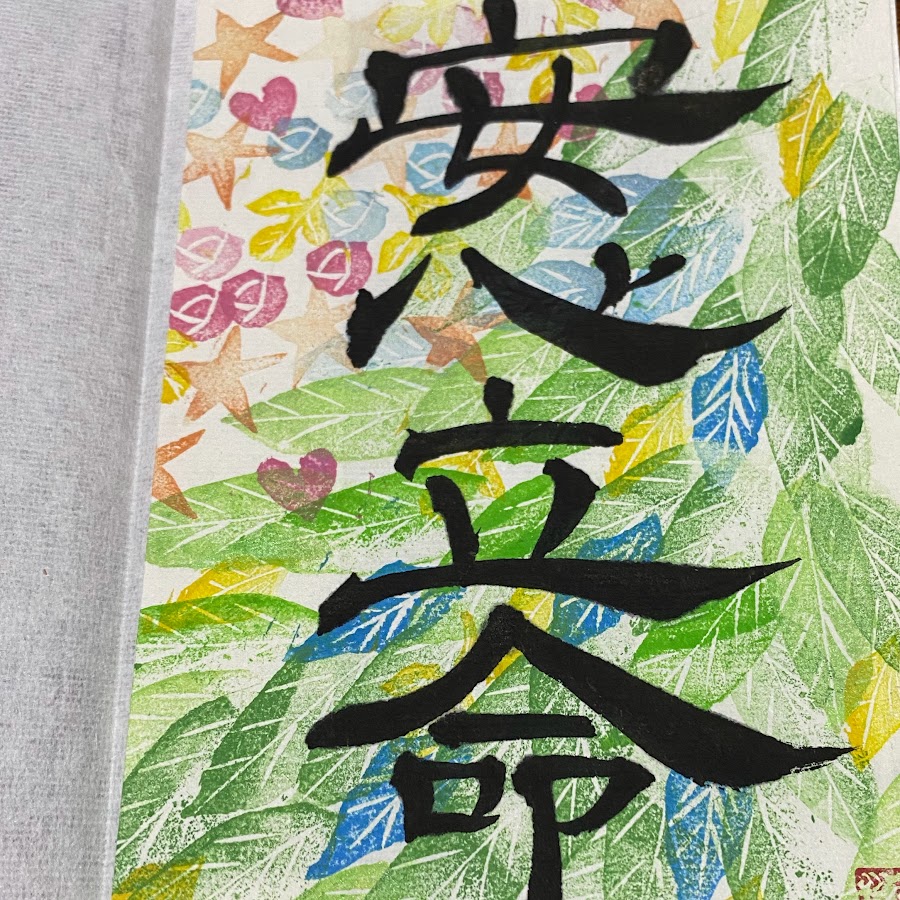 安心立命